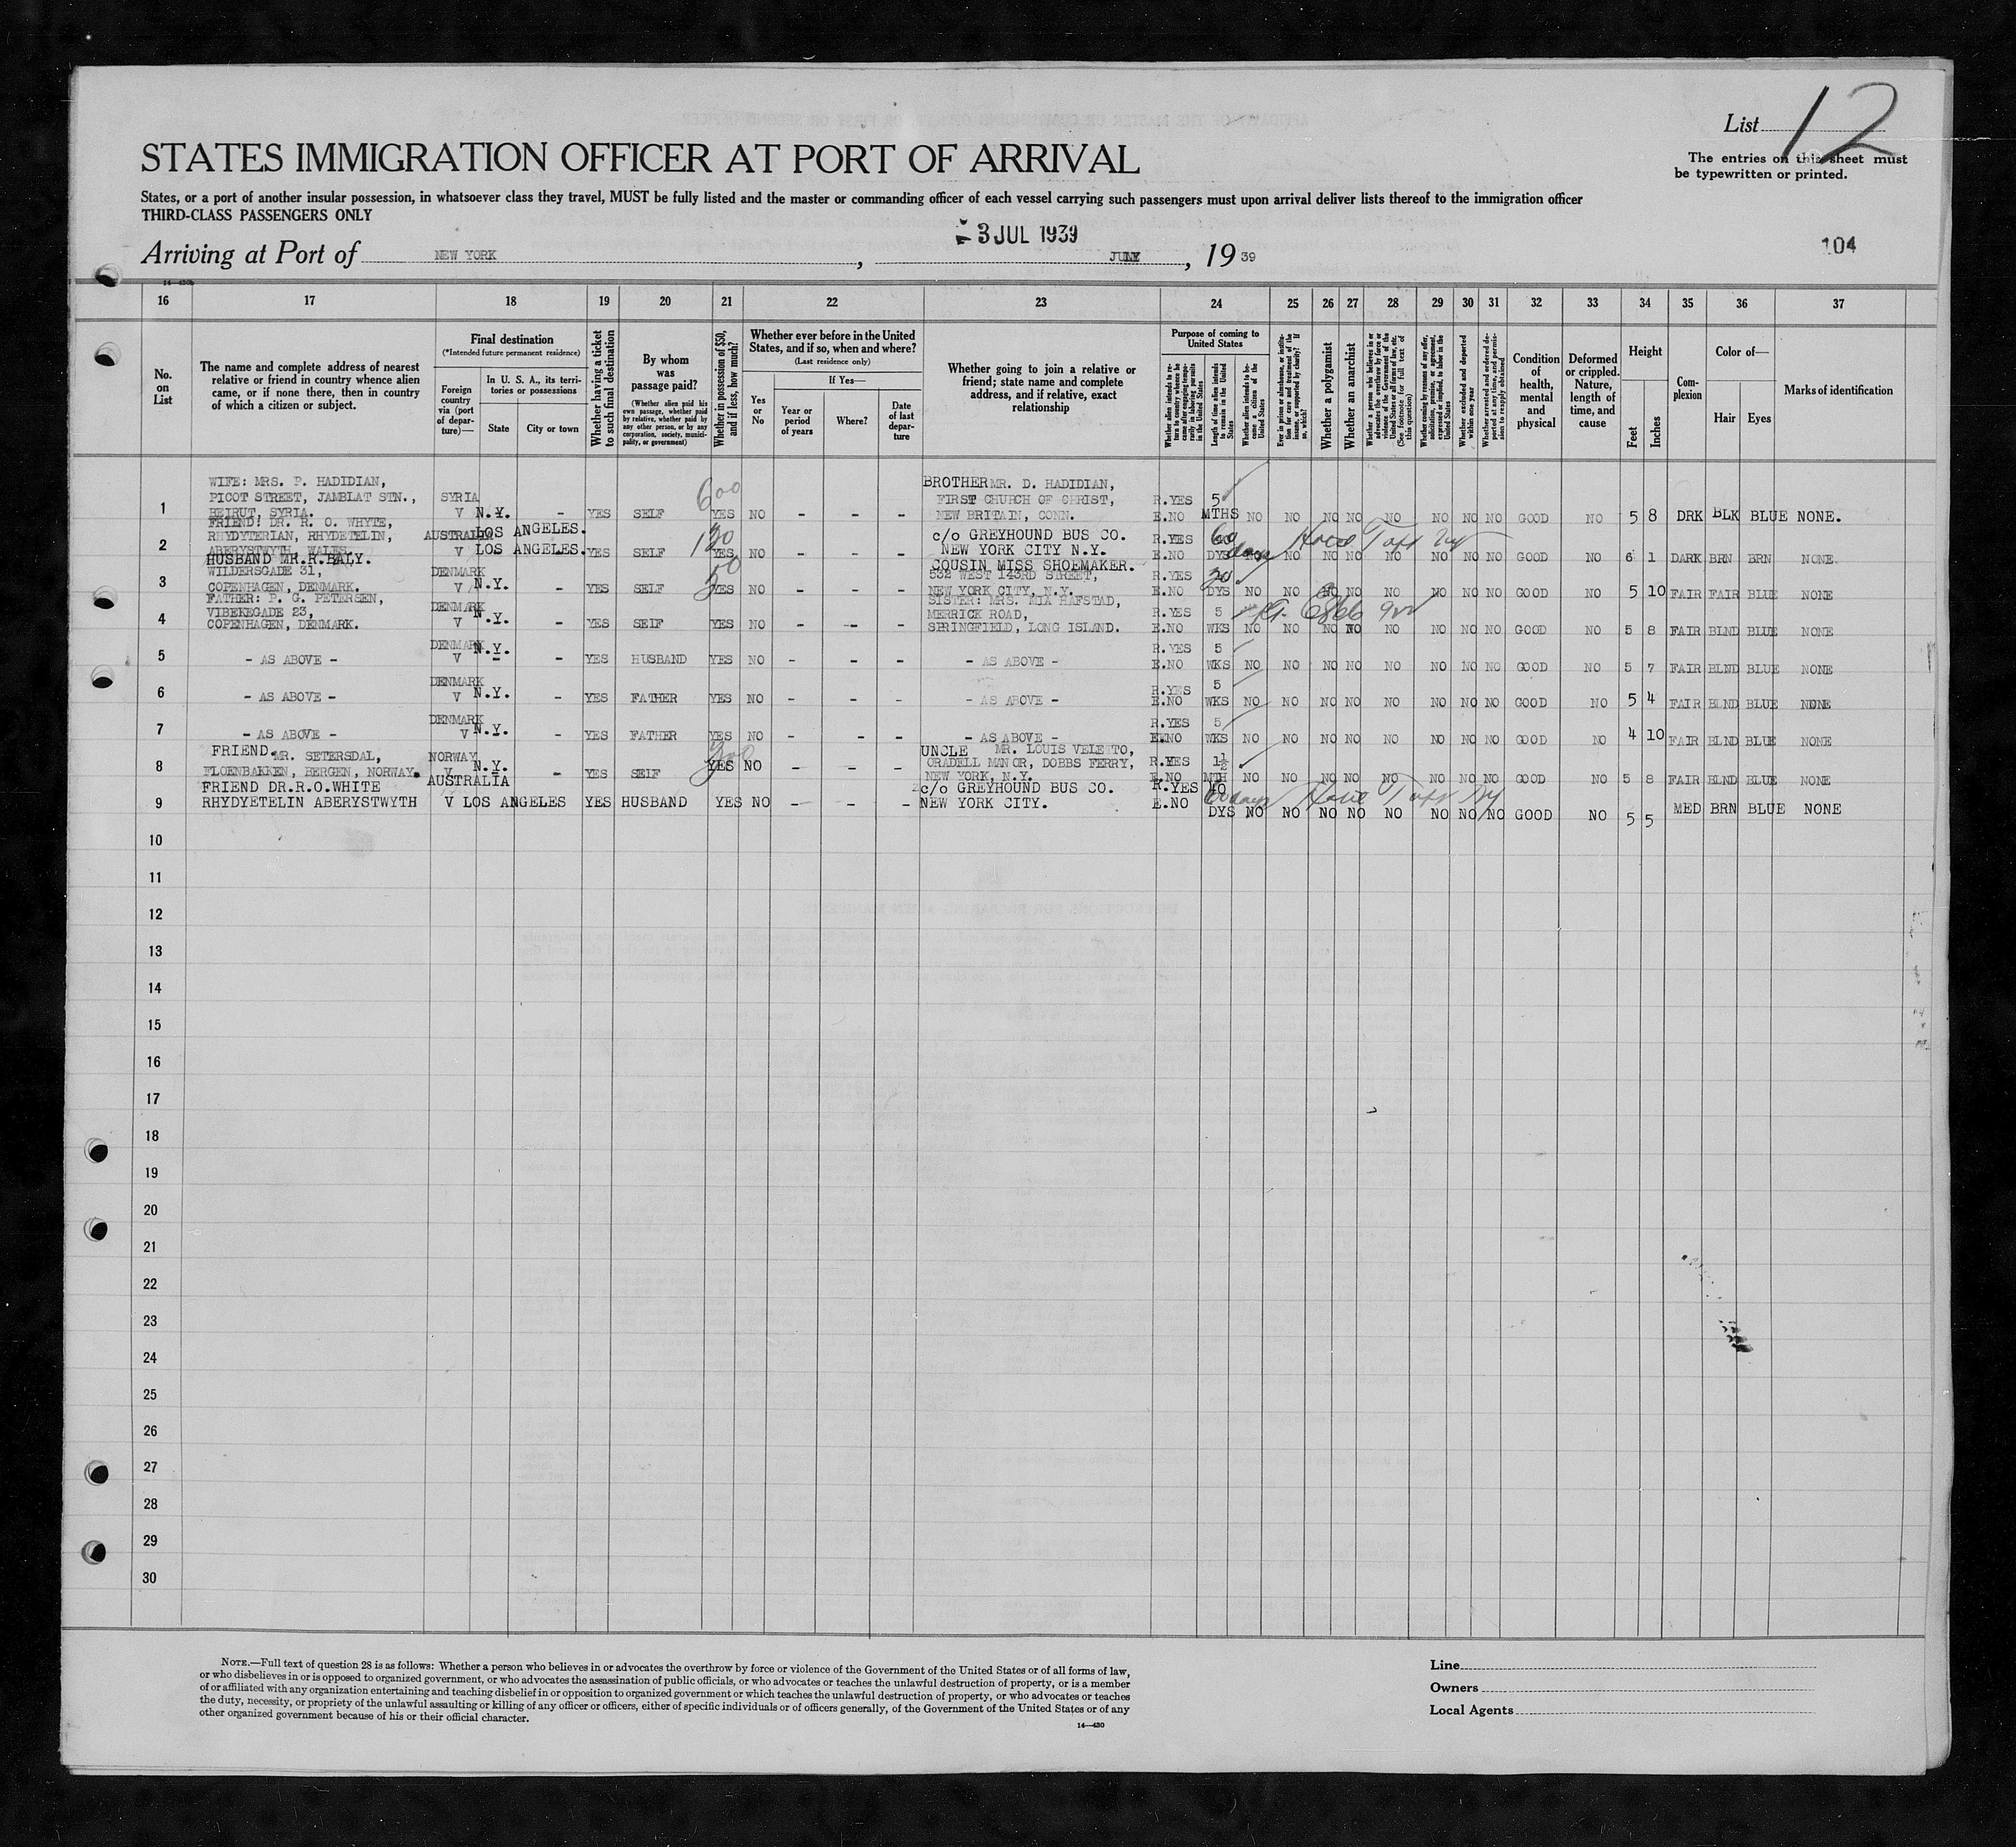 List 12
The entries on this sheet must
be typewritten or printed.
STATES IMMIGRATION OFFICER AT PORT OF ARRIVAL
States, or a port of another insular possession, in whatsoever class they travel, MUST be fully listed and the master or commanding officer of each vessel carrying such passengers must upon arrival deliver lists thereof to the immigration officer
THIRD-CLASS PASSENGERS ONLY
3 JUL 1939
Arriving at Port of NEW YORK, JULY, 19 39
104
16 17 18 19 20 21 22 23 24 25 26 27 28 29 30 31 32 33 34 35 36 37
No. on List
The name and complete address of nearest relative or friend in country whence alien came, or if none there, then in country of which a citizen or subject.
Final destination
(*Intended future permanent residence)
Foreign country via (port of departure)—
In U. S. A., its territories or possessions
State
City or town
Whether having a ticket to such final destination
By whom was passage paid?
(Whether alien paid his own passage, whether paid by relative, whether paid by any other person, or by any corporation, society, municipality, or government)
Whether in possession of $50, and if less, how much?
Whether ever before in the United States, and if so, when and where?
(Last residence only)
Yes or No
If Yes—
Year or period of years
Where?
Date of last departure
Whether going to join a relative or friend; state name and complete address, and if relative, exact relationship
Purpose of coming to United States
Length of time alien intends to remain in the United States
Whether alien intends to become a citizen of the United States
Whether a polygamist
Whether an anarchist
Whether excluded and deported within one year
Condition of health, mental and physical
Deformed or crippled. Nature, length of time, and cause
Height
Feet
Inches
Complexion
Color of—
Hair
Eyes
Marks of identification
1 WIFE: MRS. P. HADIDIAN, PICOT STREET, JAMBLAT STN., BEIRUT, SYRIA. SYRIA V N.Y. - YES SELF 600 YES NO - - - BROTHER MR. D. HADIDIAN, FIRST CHURCH OF CHRIST, NEW BRITAIN, CONN. R.YES E.NO 5 MTHS NO NO NO NO NO NO NO NO GOOD NO 5 8 DRK BLK BLUE NONE.
2 FRIEND: DR. R. O. WHYTE, RHYDYTERIAN, RHYDETELIN, ABERYSTWYTH, WALES. AUSTRALIA V LOS ANGELES. LOS ANGELES. YES SELF YES NO - - - c/o GREYHOUND BUS CO. NEW YORK CITY N.Y. R.YES E.NO 60 days DYS NO NO NO NO NO NO NO NO GOOD NO 6 1 DARK BRN BRN NONE
3 HUSBAND MR.R.BALY. WILDERSGADE 31, COPENHAGEN, DENMARK. DENMARK V N.Y. - YES SELF YES NO - - - COUSIN MISS SHOEMAKER. 532 WEST 143RD STREET, NEW YORK CITY, N.Y. R.YES E.NO 30 DYS NO NO NO NO NO NO NO NO GOOD NO 5 10 FAIR FAIR BLUE NONE
4 FATHER: P. G. PETERSEN, VIBEKEGADE 23, COPENHAGEN, DENMARK. DENMARK V N.Y. - YES SELF YES NO - - - SISTER: MRS. MIA HAFSTAD, MERRICK ROAD, SPRINGFIELD, LONG ISLAND. R.YES E.NO 5 WKS NO NO NO NO NO NO NO NO GOOD NO 5 8 FAIR BLND BLUE NONE
5 - AS ABOVE - DENMARK V N.Y. - YES HUSBAND YES NO - - - - AS ABOVE - R.YES E.NO 5 WKS NO NO NO NO NO NO NO NO GOOD NO 5 7 FAIR BLND BLUE NONE
6 - AS ABOVE - DENMARK V N.Y. - YES FATHER YES NO - - - - AS ABOVE - R.YES E.NO 5 WKS NO NO NO NO NO NO NO NO GOOD NO 5 4 FAIR BLND BLUE NONE
7 - AS ABOVE - DENMARK V N.Y. - YES FATHER YES NO - - - - AS ABOVE - R.YES E.NO 5 WKS NO NO NO NO NO NO NO NO GOOD NO 4 10 FAIR BLND BLUE NONE
8 FRIEND. MR. SETERSDAL, FLOENBAKKEN, BERGEN, NORWAY. NORWAY V N.Y. - YES SELF 300 YES NO - - - UNCLE MR. LOUIS VELETTO, ORADELL MANOR, DOBBS FERRY, NEW YORK, N.Y. R.YES E.NO 1½ MTH NO NO NO NO NO NO NO NO GOOD NO 5 8 FAIR BLND BLUE NONE
9 FRIEND DR.R.O.WHITE RHYDYETELIN ABERYSTWYTH AUSTRALIA V LOS ANGELES YES HUSBAND YES NO - - - c/o GREYHOUND BUS CO. NEW YORK CITY. R.YES E.NO 60 days DYS NO NO NO NO NO NO NO NO GOOD NO 5 5 MED BRN BLUE NONE
10
11
12
13
14
15
16
17
18
19
20
21
22
23
24
25
26
27
28
29
30
NOTE.—Full text of question 28 is as follows: Whether a person who believes in or advocates the overthrow by force or violence of the Government of the United States or of all forms of law,
or who disbelieves in or is opposed to organized government, or who advocates the assassination of public officials, or who advocates or teaches the unlawful destruction of property, or is a member
of or affiliated with any organization entertaining and teaching disbelief in or opposition to organized government or which teaches the unlawful destruction of property, or who advocates or teaches
the duty, necessity, or propriety of the unlawful assaulting or killing of any officer or officers, either of specific individuals or of officers generally, of the Government of the United States or of any
other organized government because of his or their official character.
14—430
Line
Owners
Local Agents